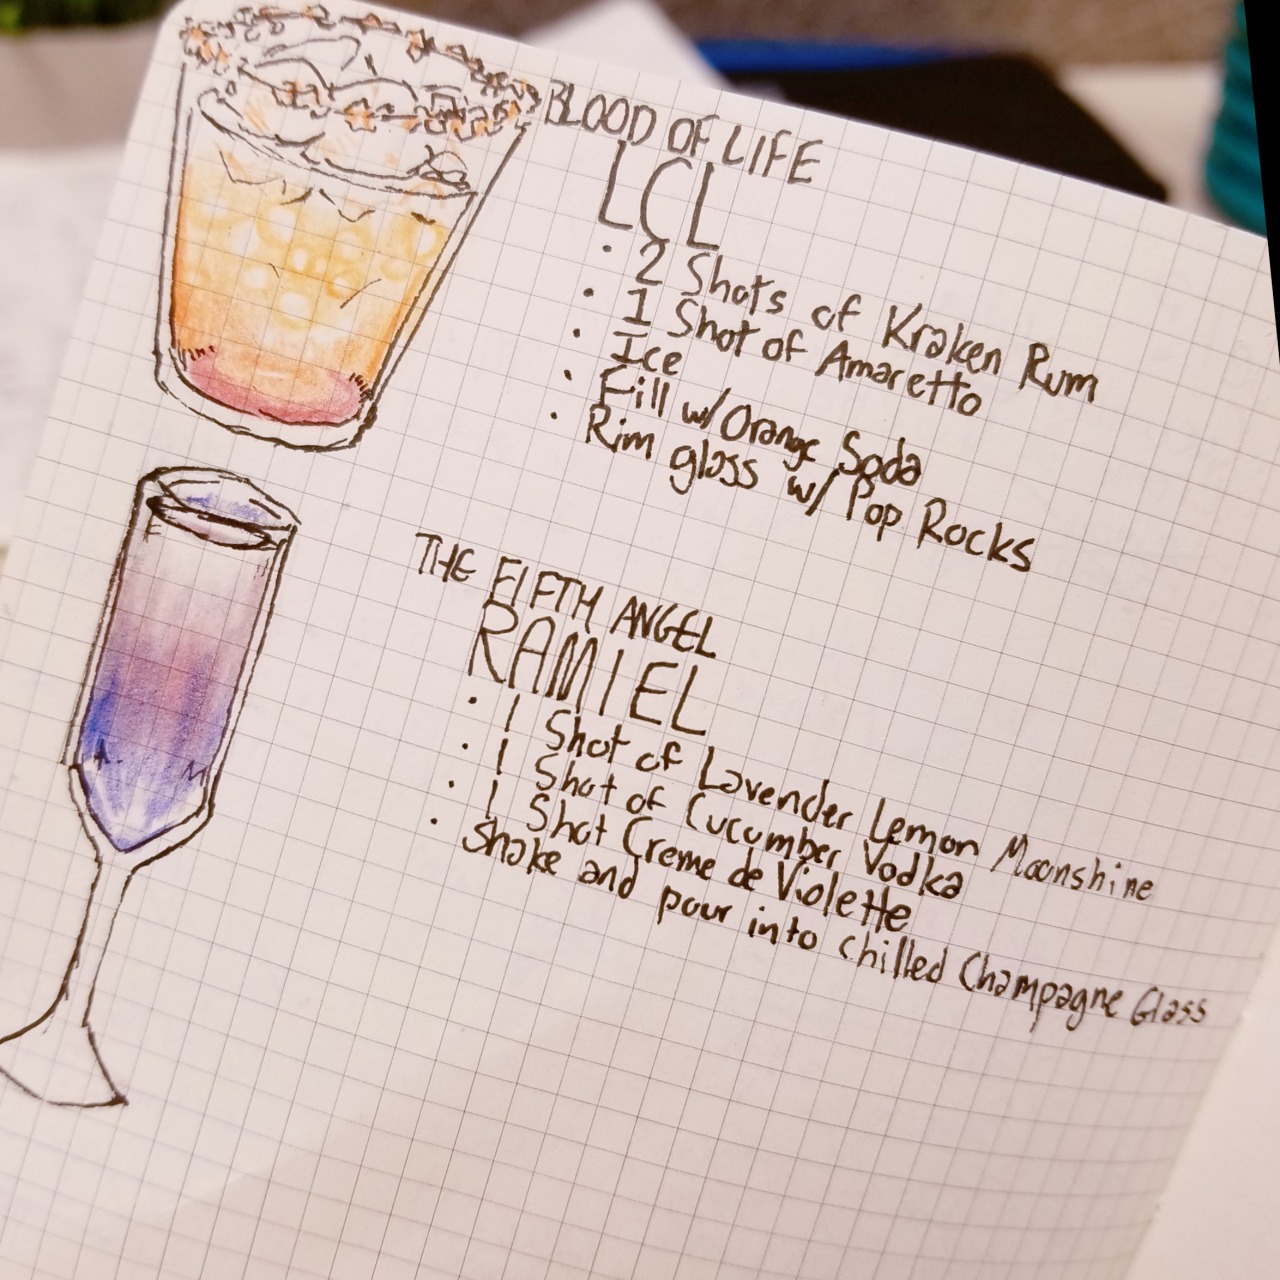 BLOOD OF LIFE
LCL
· 2 Shots of Kraken Rum
· 1 Shot of Amaretto
· Ice
· Fill w/ Orange Soda
· Rim glass w/ Pop Rocks
THE FIFTH ANGEL
RAMIEL
· 1 Shot of Lavender Lemon Moonshine
· 1 Shot of Cucumber Vodka
· 1 Shot Creme de Violette
· Shake and pour into Chilled Champagne Glass